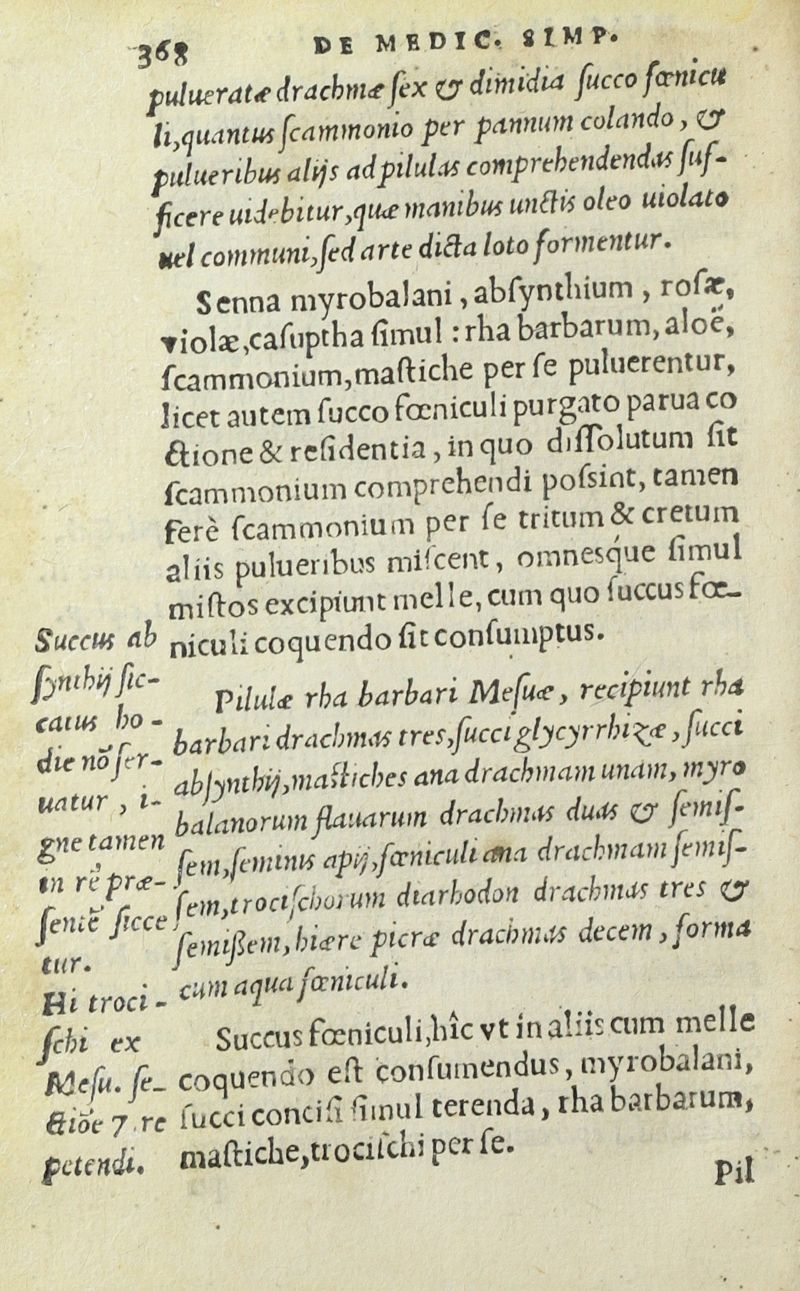 368 DE MEDIC. SIMP.
pulueratæ drachmæ ſex & dimidia ſucco fœnicu
li,quantus ſcammonio per pannum colando, &
pulueribus alijs ad pilulas comprehendendas ſuf-
ficere uidebitur,quæ manibus unctis oleo uiolato
uel communi,ſed arte dicta loto formentur.
Senna myrobalani, abſynthium, roſæ,
violæ,caſuptha ſimul : rha barbarum, aloë,
ſcammonium,maſtiche per ſe puluerentur,
licet autem ſucco fœniculi purgato parua co
ctione & reſidentia, in quo diſſolutum ſit
ſcammonium comprehendi poſsint, tamen
ferè ſcammonium per ſe tritum & cretum
aliis pulueribus miſcent, omnesque ſimul
miſtos excipiunt melle, cum quo ſuccus fœ-
niculi coquendo ſit conſumptus.
Succus ab
ſynthij ſic-
catus ho-
die nõ ſer-
uatur, i-
gne tamen
in re præ-
ſente ſicce
tur.
Pilulæ rha barbari Meſuæ, recipiunt rha
barbari drachmas tres,ſucci glycyrrhizæ,ſucci
abſynthij,maſtiches ana drachmam unam, myro
balanorum flauarum drachmas duas & ſemiſ-
ſem,ſeminis apij,fœniculi ana drachmam ſemiſ-
ſem,trociſchorum diarhodon drachmas tres &
ſemiſſem,hiæræ picræ drachmas decem, forma
cum aqua fœniculi.
Hi troci-
ſchi ex
Meſu. ſe-
ctiõe 7. re
petendi.
Succus fœniculi,hîc vt in aliis cum melle
coquendo eſt conſumendus, myrobalani,
ſucci conciſi ſimul terenda, rha barbarum,
maſtiche,trociſchi per ſe.
Pil